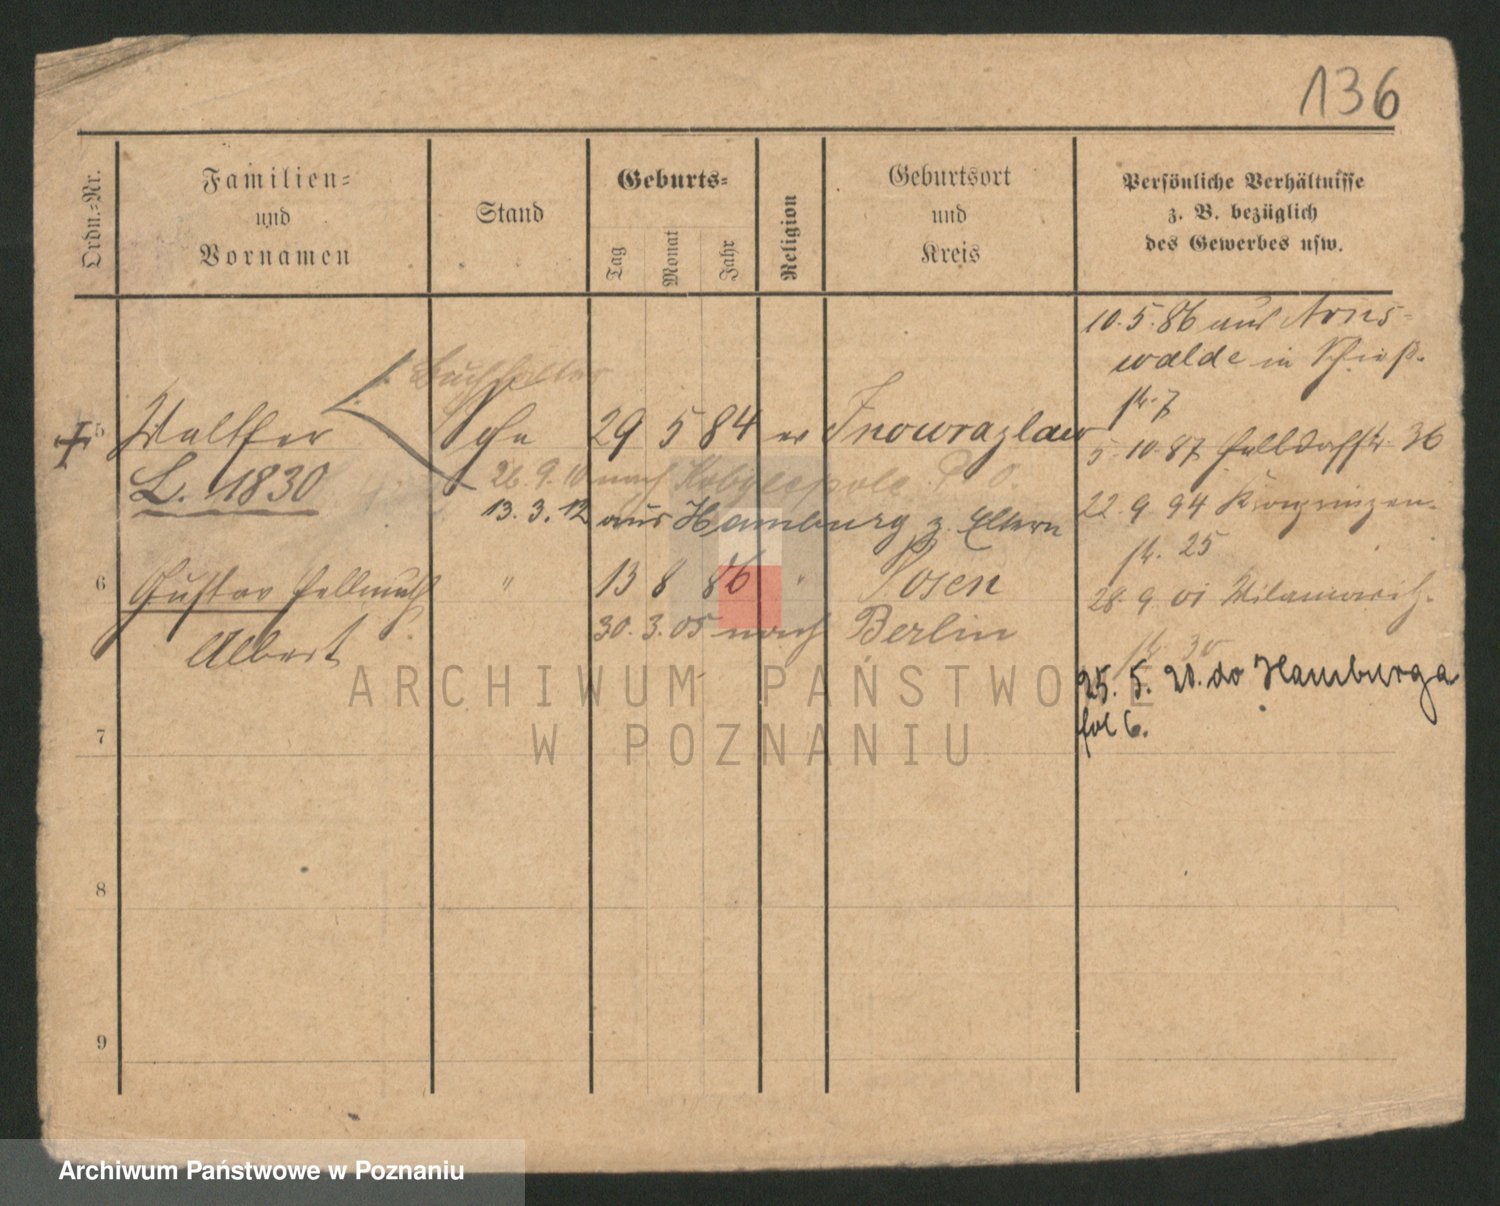 136
Ordn.-Nr.
Familien-
und
Vornamen
Stand
Geburts-
Tag
Monat
Jahr
Religion
Geburtsort
und
Kreis
Persönliche Verhältnisse
z. B. bezüglich
des Gewerbes usw.
10. 5. 86 aus Arns-
walde in
str. 7
Buchhalter
5 Walther 29 5 84 ev Inowrazlaw
5. 10. 87 36
L. 1830
26. 9. 10 nach Kobylepole P. O.
22. 9. 94 Kronprinzen-
str. 25
13. 3. 12 aus Hamburg z. Eltern
6 Gustav Hellmuth " 13 8 86 " Posen
Albert
30. 3. 05 nach Berlin
28. 9. 01
str. 30
25. 5. 20. do Hamburga
fol 6.
7
8
9
ARCHIWUM PAŃSTWOWE
W POZNANIU
Archiwum Państwowe w Poznaniu